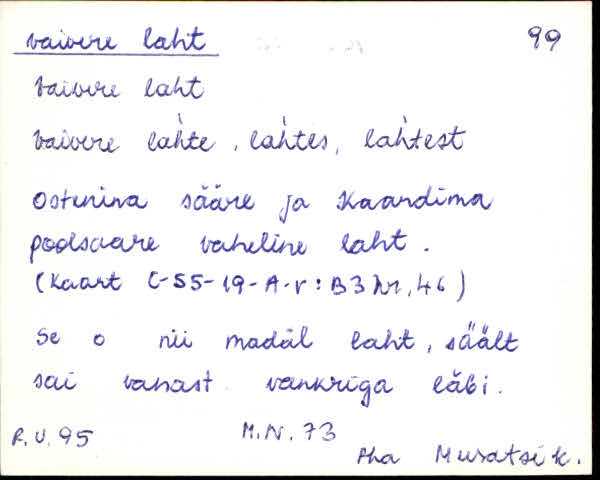 Vaivere laht 99
Vaivere laht
Vaivere lah̀te, lah̀tes, lah̀test
Ostenina sääre ja Kaandima
poolsaare vaheline laht.
(Kaart C-55-19-A-v: B3 Nr, 46)
Se o nii madàl laht, säält
sai vanast vankriga läbi.
R.V. 95 M.N. 73
Aha Muratsi k.